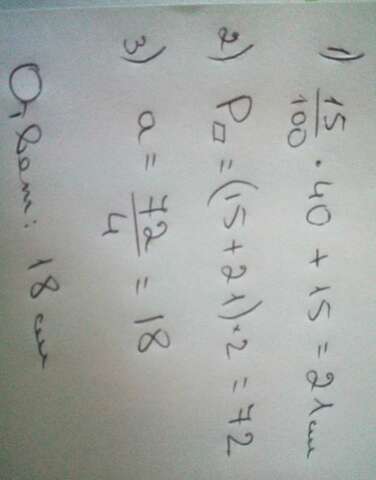 1) 15/100 · 40 + 15 = 21 см
2) P▱ = (15 + 21) · 2 = 72
3) a = 72/4 = 18
Ответ: 18 см